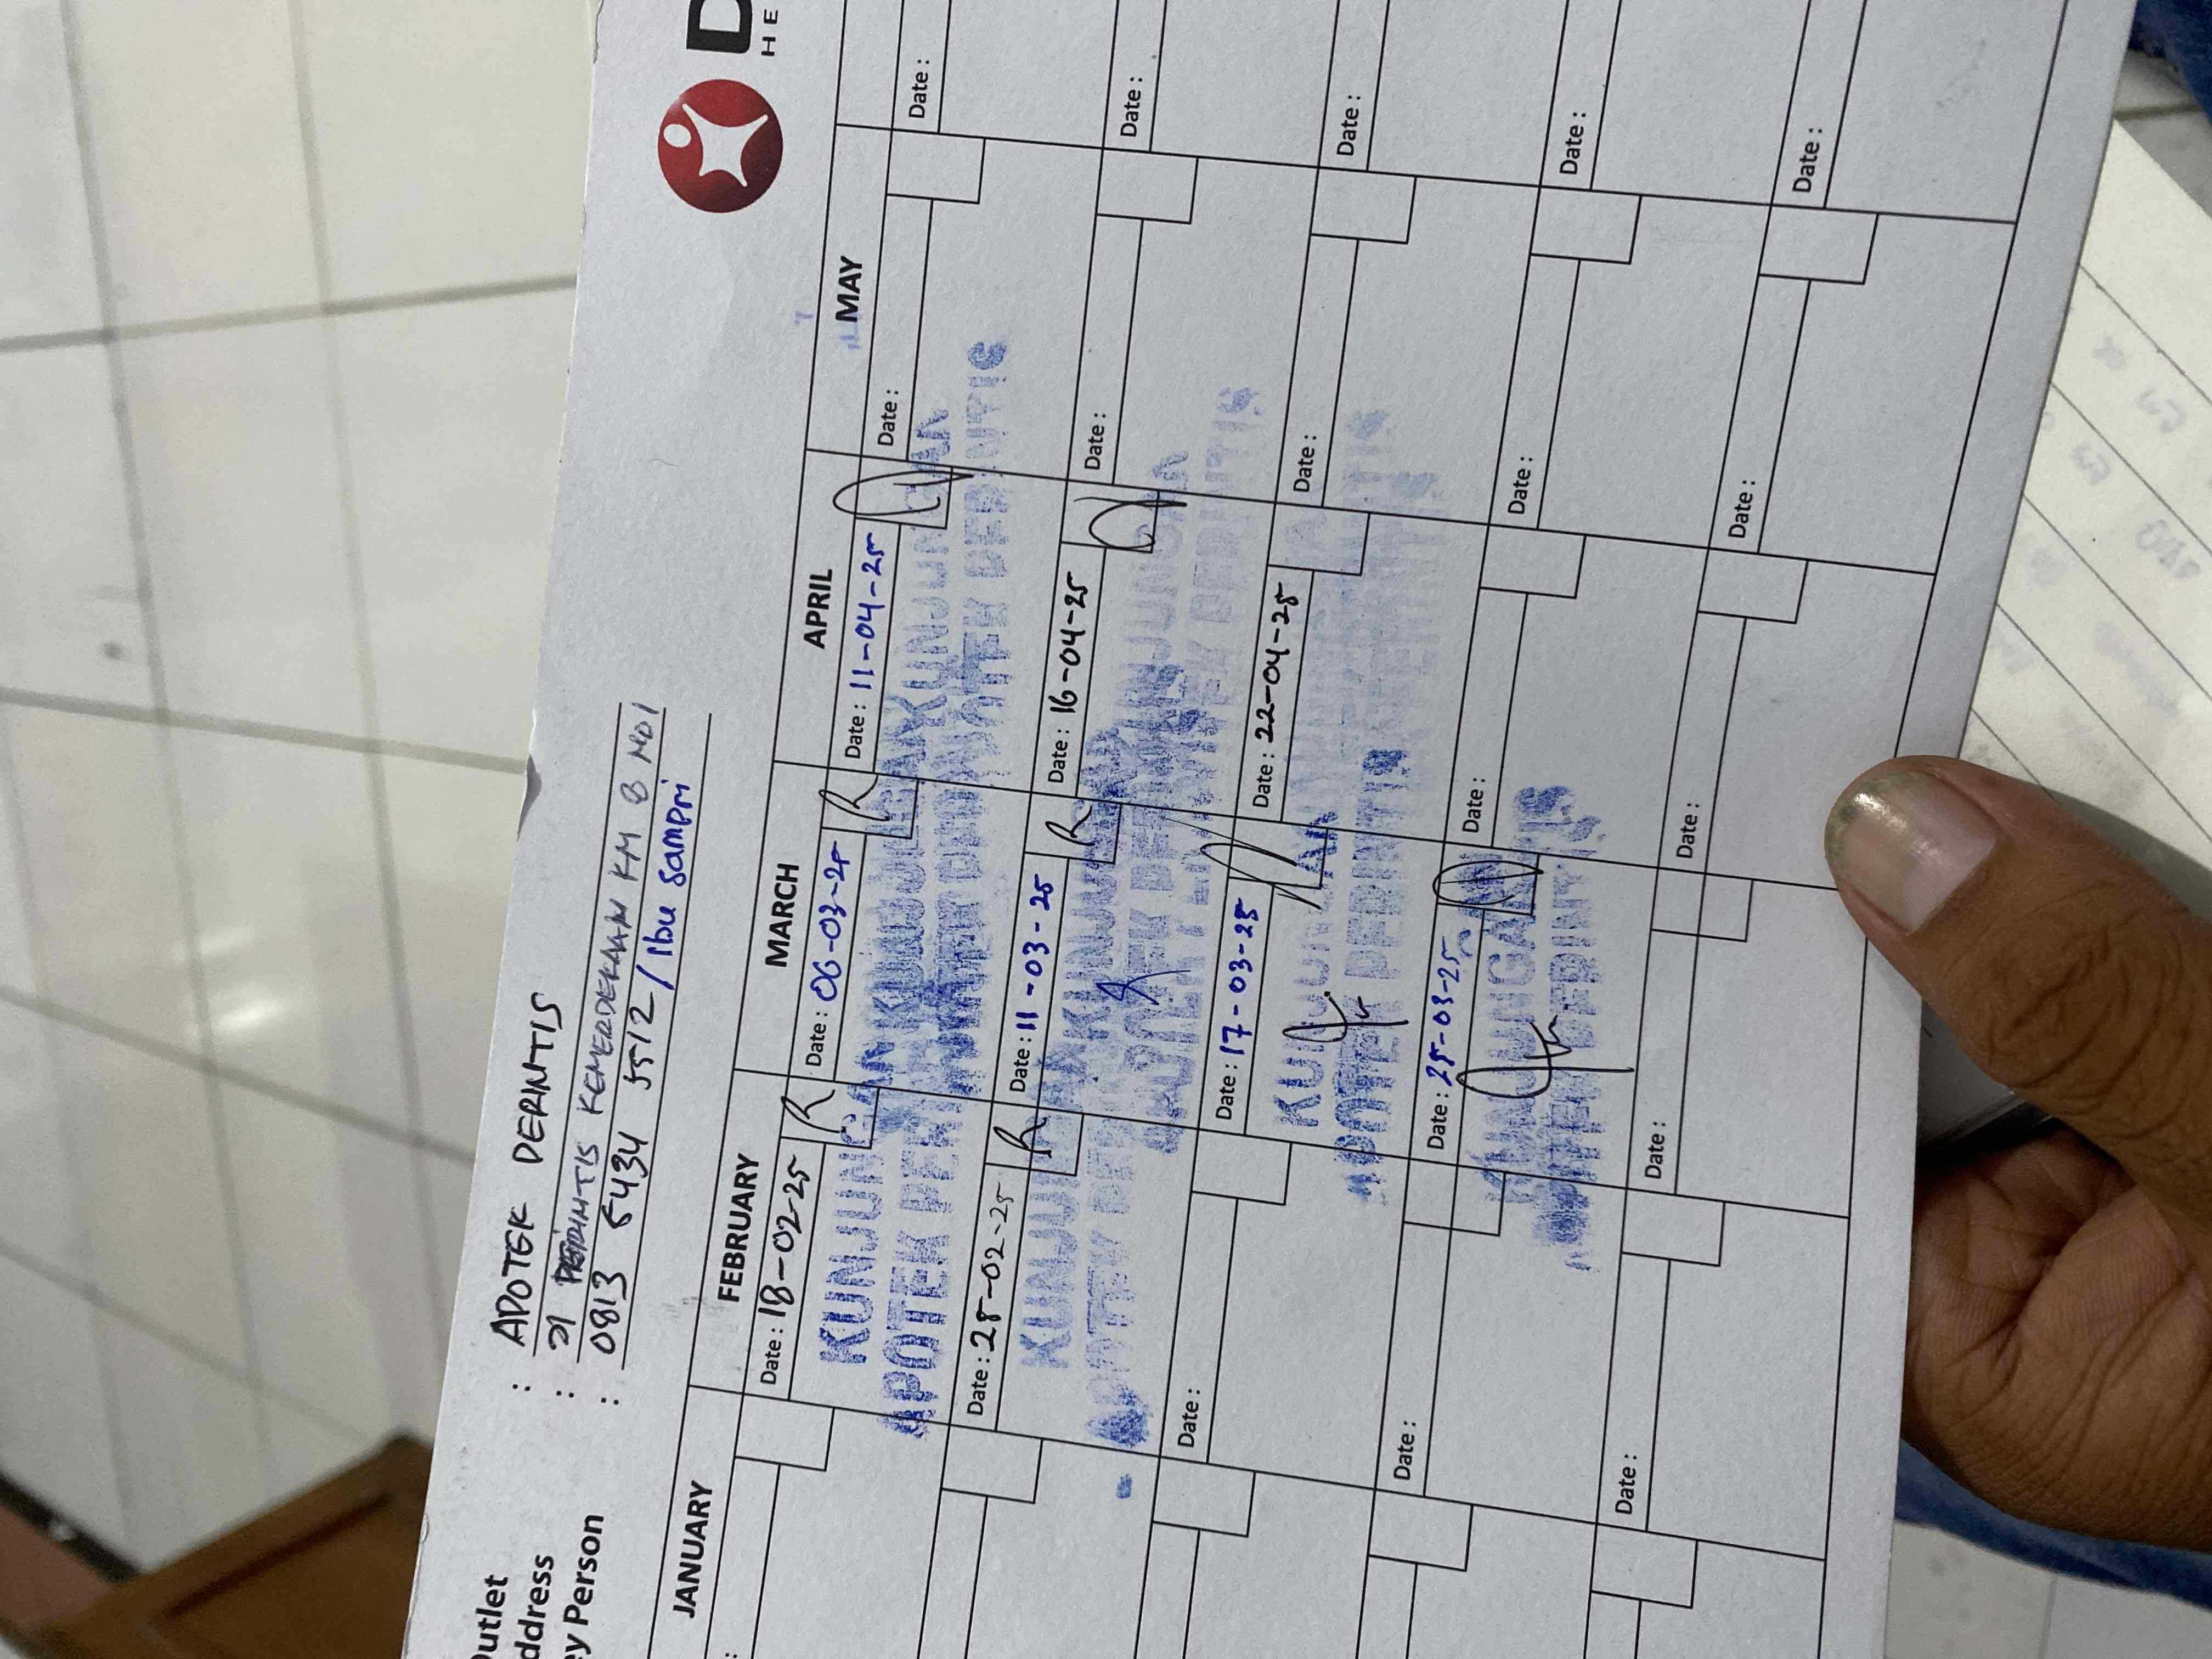 D
HE
Outlet : APOTEK PERINTIS
ddress : Jl PERINTIS KEMERDEKAAN KM 8 NO1
ey Person : 0813 5434 5512 / Ibu Sampri
JANUARY FEBRUARY MARCH APRIL MAY
Date : 18-02-25 Date : 06-03-25 Date : 11-04-25 Date : Date :
KUNJUNGAN
APOTEK PERINTIS
Date : 28-02-25 Date : 11-03-25 Date : 16-04-25 Date : Date :
KUNJUNGAN
APOTEK PERINTIS
Date : Date : 17-03-25 Date : 22-04-25 Date : Date :
KUNJUNGAN
APOTEK PERINTIS
Date : Date : 25-03-25 Date : Date : Date :
KUNJUNGAN
PERINTIS
Date : Date : Date : Date : Date :